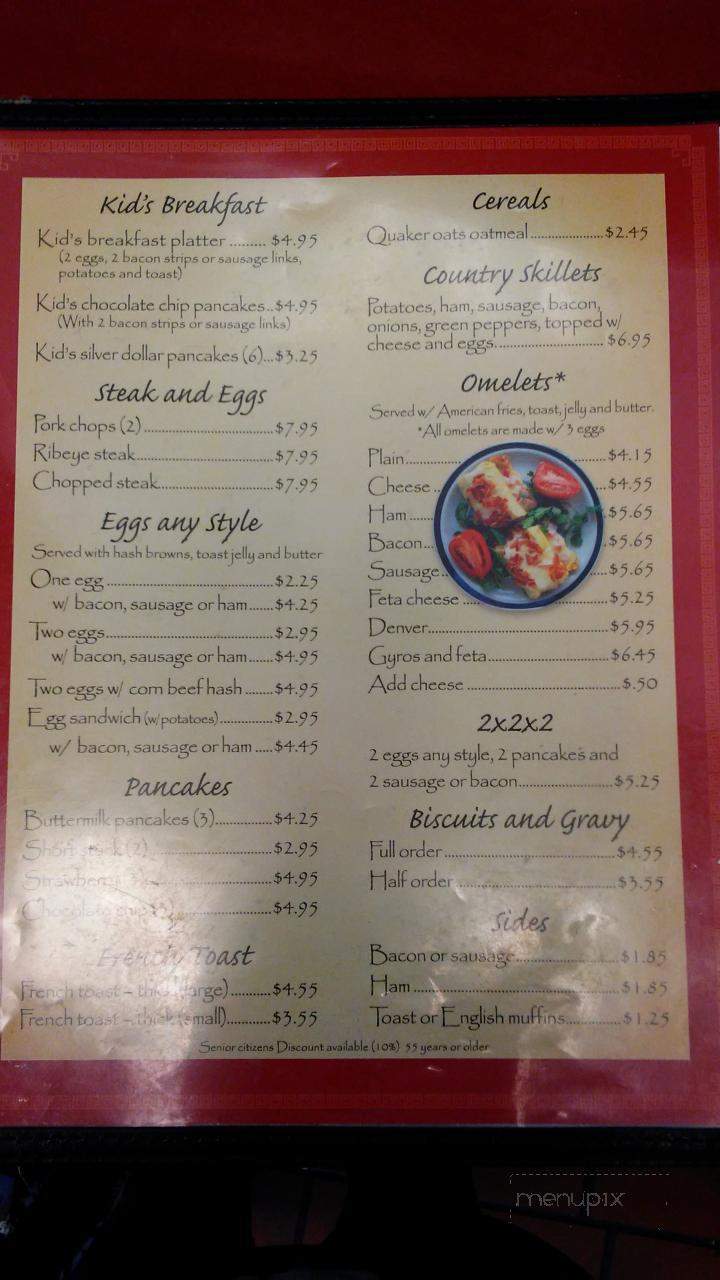 Kid's Breakfast
Kid's breakfast platter ......... $4.95
(2 eggs, 2 bacon strips or sausage links,
potatoes and toast)
Kid's chocolate chip pancakes..$4.95
(With 2 bacon strips or sausage links)
Kid's silver dollar pancakes (6)...$3.25
Steak and Eggs
Pork chops (2)..............................$7.95
Ribeye steak................................$7.95
Chopped steak..........................$7.95
Eggs any Style
Served with hash browns, toast jelly and butter
One egg......................................$2.25
w/ bacon, sausage or ham.......$4.25
Two eggs.....................................$2.95
w/ bacon, sausage or ham.......$4.95
Two eggs w/ corn beef hash.......$4.95
Egg sandwich (w/potatoes)..............$2.95
w/ bacon, sausage or ham.....$4.45
Pancakes
Buttermilk pancakes (3)...............$4.25
Short stack (2)...........................$2.95
Strawberry...........................$4.95
Chocolate chip...........................$4.95
French Toast
French toast – thick (large)..........$4.55
French toast – thick (small)...........$3.55
Cereals
Quaker oats oatmeal.....................$2.45
Country Skillets
Potatoes, ham, sausage, bacon,
onions, green peppers, topped w/
cheese and eggs............................ $6.95
Omelets*
Served w/ American fries, toast, jelly and butter.
*All omelets are made w/ 3 eggs
Plain.........................$4.15
Cheese.........................$4.55
Ham.........................$5.65
Bacon.........................$5.65
Sausage.........................$5.65
Feta cheese.........................$5.25
Denver.................................................$5.95
Gyros and feta.................................$6.45
Add cheese..........................................$.50
2x2x2
2 eggs any style, 2 pancakes and
2 sausage or bacon.........................$5.25
Biscuits and Gravy
Full order..............................................$4.55
Half order............................................$3.55
Sides
Bacon or sausage............................$1.85
Ham.....................................................$1.85
Toast or English muffins..............$1.25
Senior citizens Discount available (10%) 55 years or older
menupix